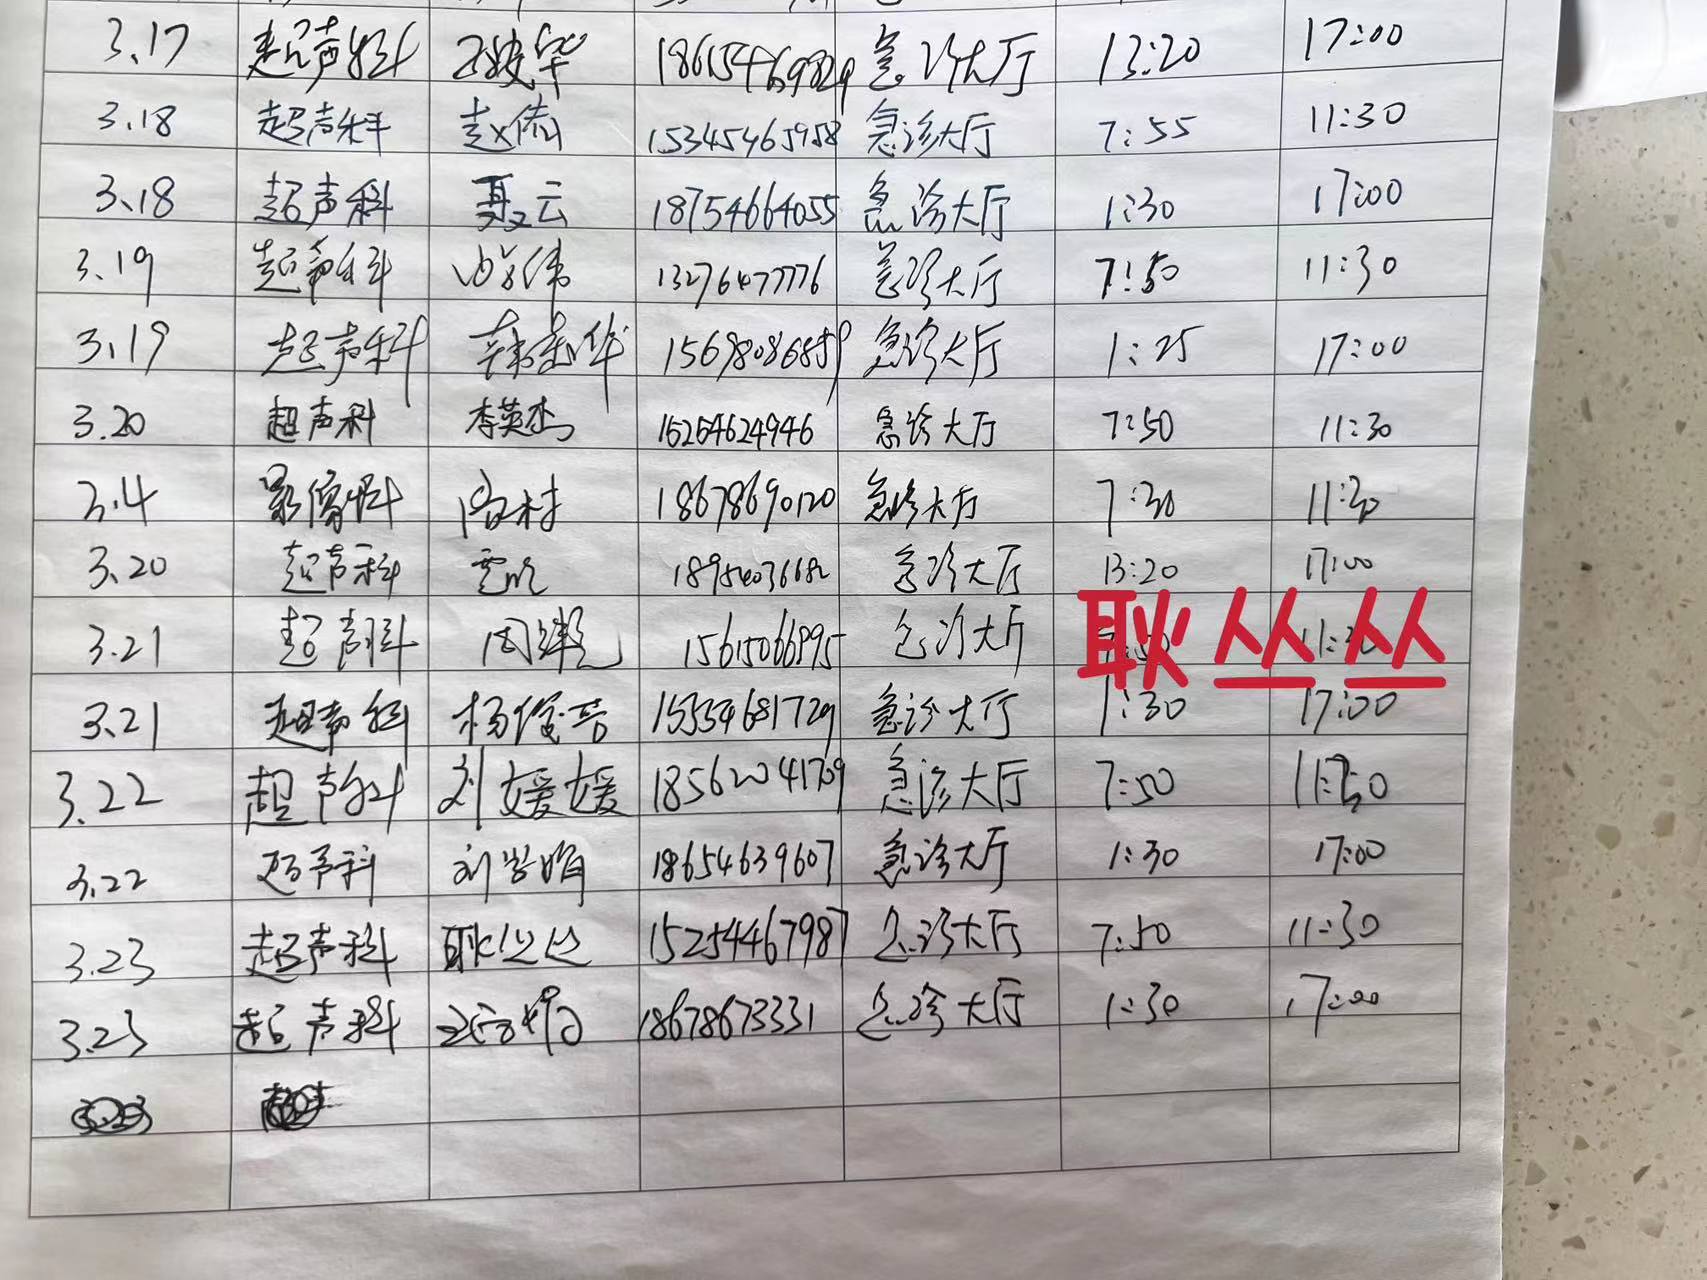 3.17 超声科 18615469829 急诊大厅 13:20 17:00
3.18 超声科 赵倩 15345465958 急诊大厅 7:55 11:30
3.18 超声科 聂云 18754664055 急诊大厅 1:30 17:00
3.19 超声科 13276477776 急诊大厅 7:50 11:30
3.19 超声科 韩 华 15698086859 急诊大厅 1:25 17:00
3.20 超声科 李英杰 15254624946 急诊大厅 7:50 11:30
3.4 影像科 村 18678690120 急诊大厅 7:30 11:30
3.20 超声科 急诊大厅 13:20 17:00
耿丛丛
3.21 超声科 周 15615066995 急诊大厅 7:50 11:30
3.21 超声科 杨俊芸 15554681729 急诊大厅 1:30 17:00
3.22 超声科 刘媛媛 18562041709 急诊大厅 7:50
3.22 超声科 刘 娟 18654639607 急诊大厅 1:30 17:00
3.23 超声科 耿丛丛 15254467987 急诊大厅 7:50 11:30
3.23 超声科 18678673331 急诊大厅 1:30 17:00